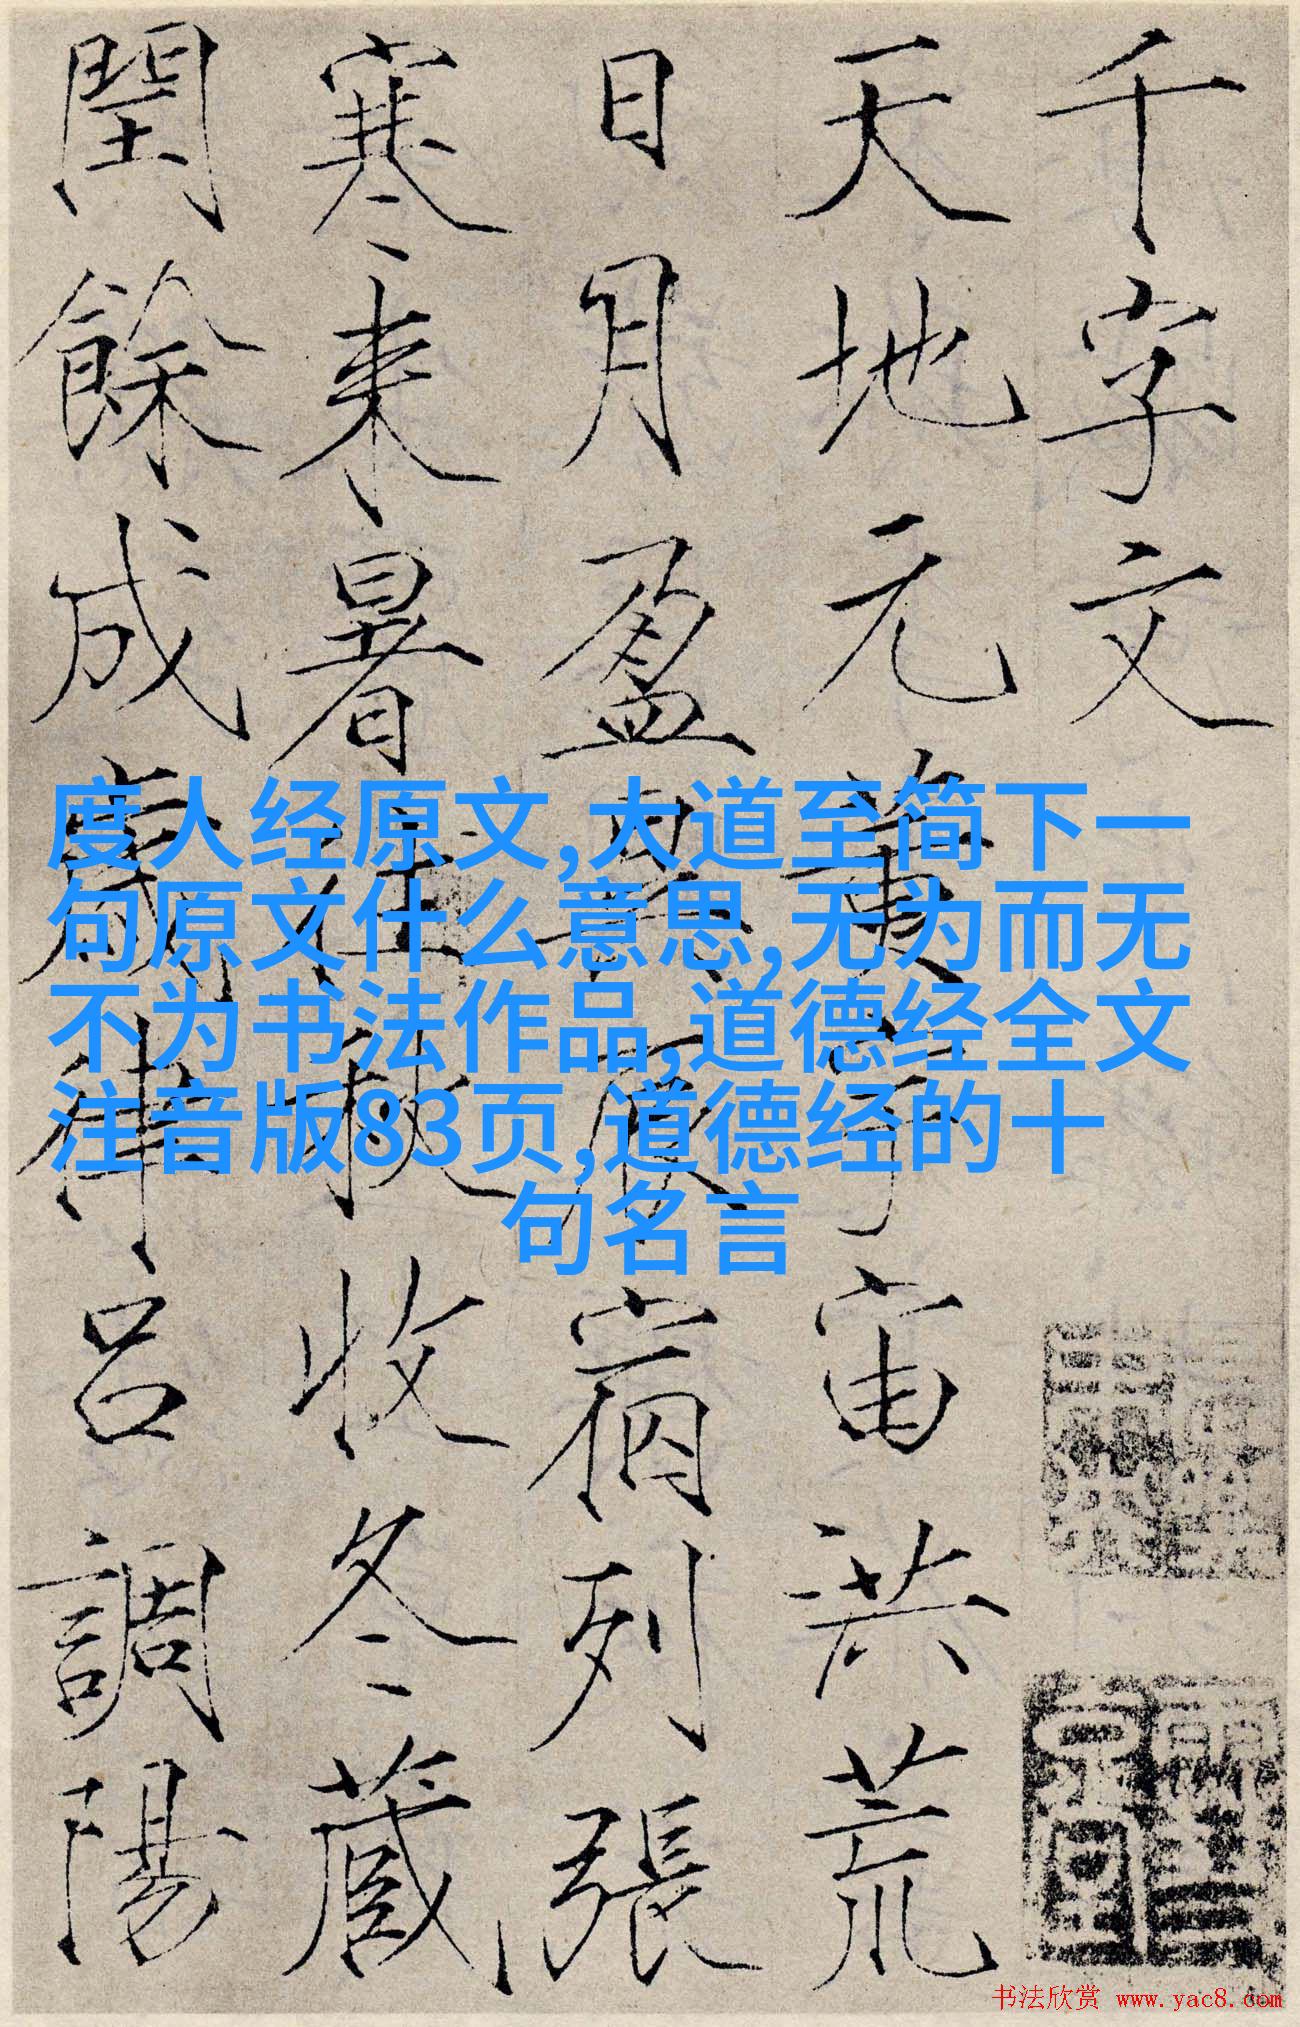 千字文
天地元黃宇宙洪荒
日月盈昃辰宿列張
寒来暑往秋收冬藏
閏餘成歲律呂調陽
度人经原文,大道至简下一
句原文什么意思,无为而无
不为书法作品,道德经全文
注音版83页,道德经的十
句名言
书法欣赏 www.yac8.com